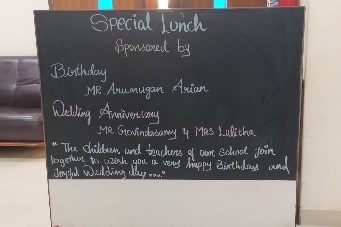 Special Lunch
Sponsored by
Birthday
MR. Arumugan Arian
Wedding Anniversary
MR Govindasamy & MRS Lalitha
"The children and teachers of our school Join
together to wish you a very happy Birthdays and
Joyful Wedding day....."